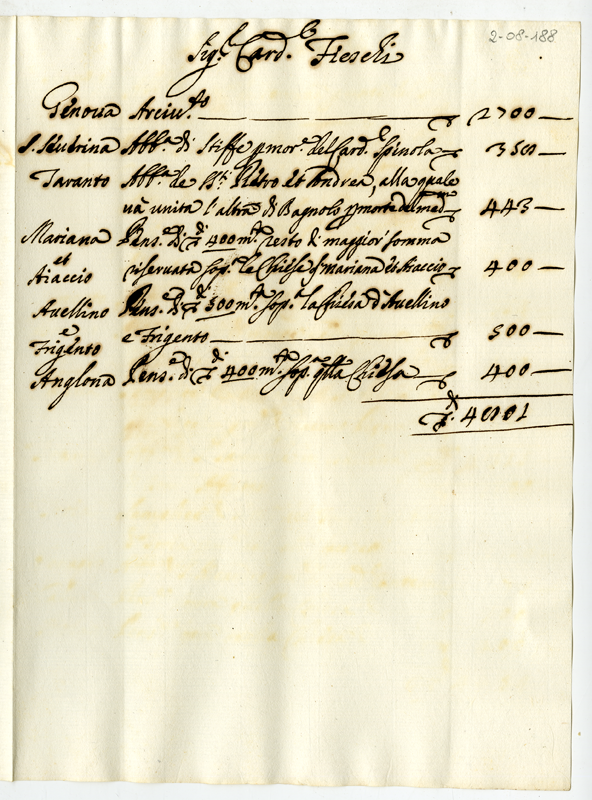 2-08-188
Sig.r Card.l Fieschi
Genova Arciv.to 2700 —
S. Severina Abb.a di Stiffe p mor.e del Card.l Spinola 350 —
Taranto Abb.a de SS.ti Pietro et Andrea, alla quale
và unita l'altra di Bagnolo p morte del med.mo 443 —
Mariana Pens.e di 400 m.ta resto di maggior somma
et
Aiaccio riservata sop.a le Chiese di Mariana et Aiaccio 400 —
Avellino Pens.e di 500 m.ta sop.a la Chiesa d'Avellino
e
Frigento e Frigento 500 —
Anglona Pens.e di 400 m.ta sop.a qlla Chiesa 400 —